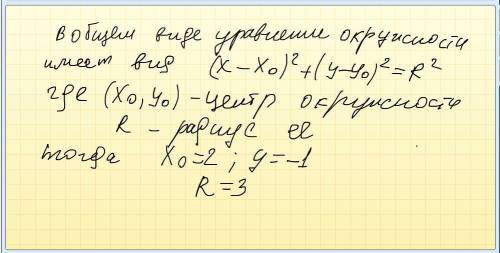 в общем виде уравнение окружности
имеет вид (x-x₀)²+(y-y₀)²=R²
где (x₀,y₀) - центр окружности
R - радиус ее
тогда x₀=2; y=-1
R=3